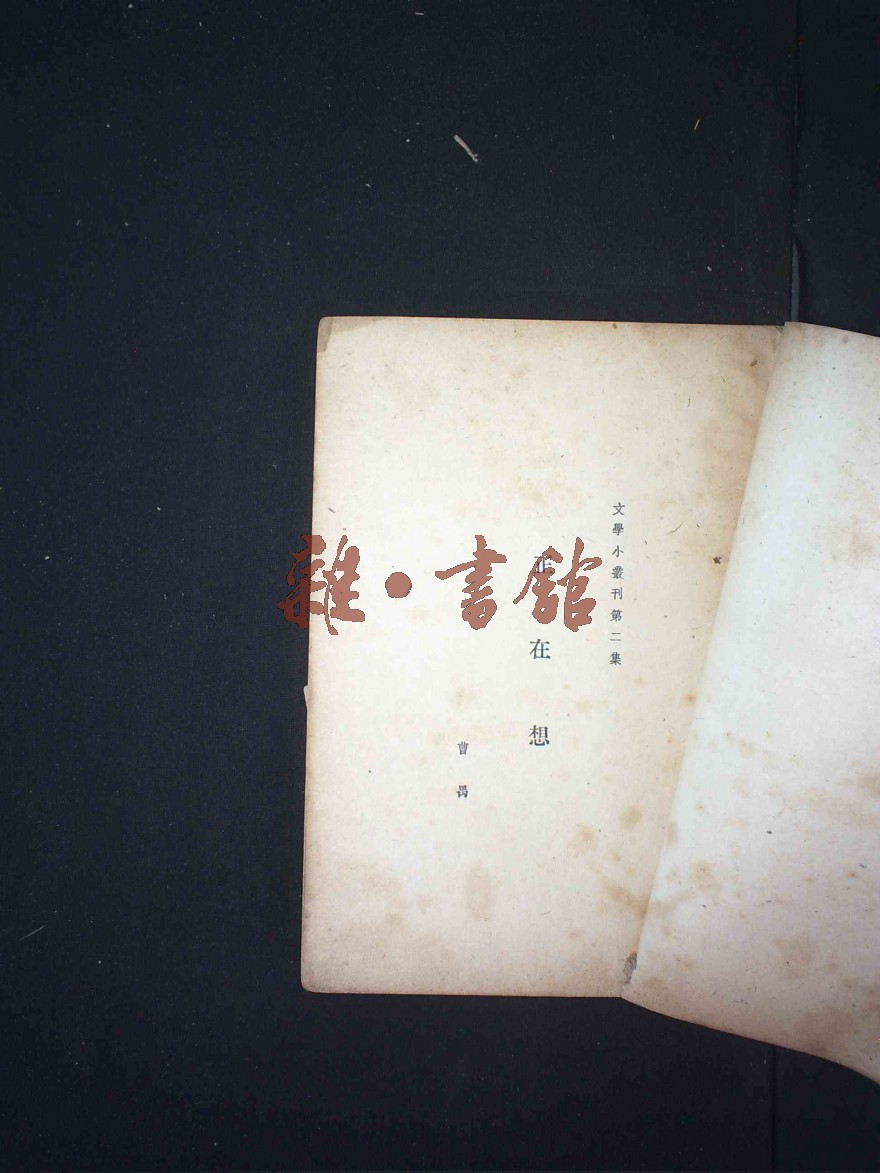 文學小叢刊第二集
正在想
曹禺
雜·書館